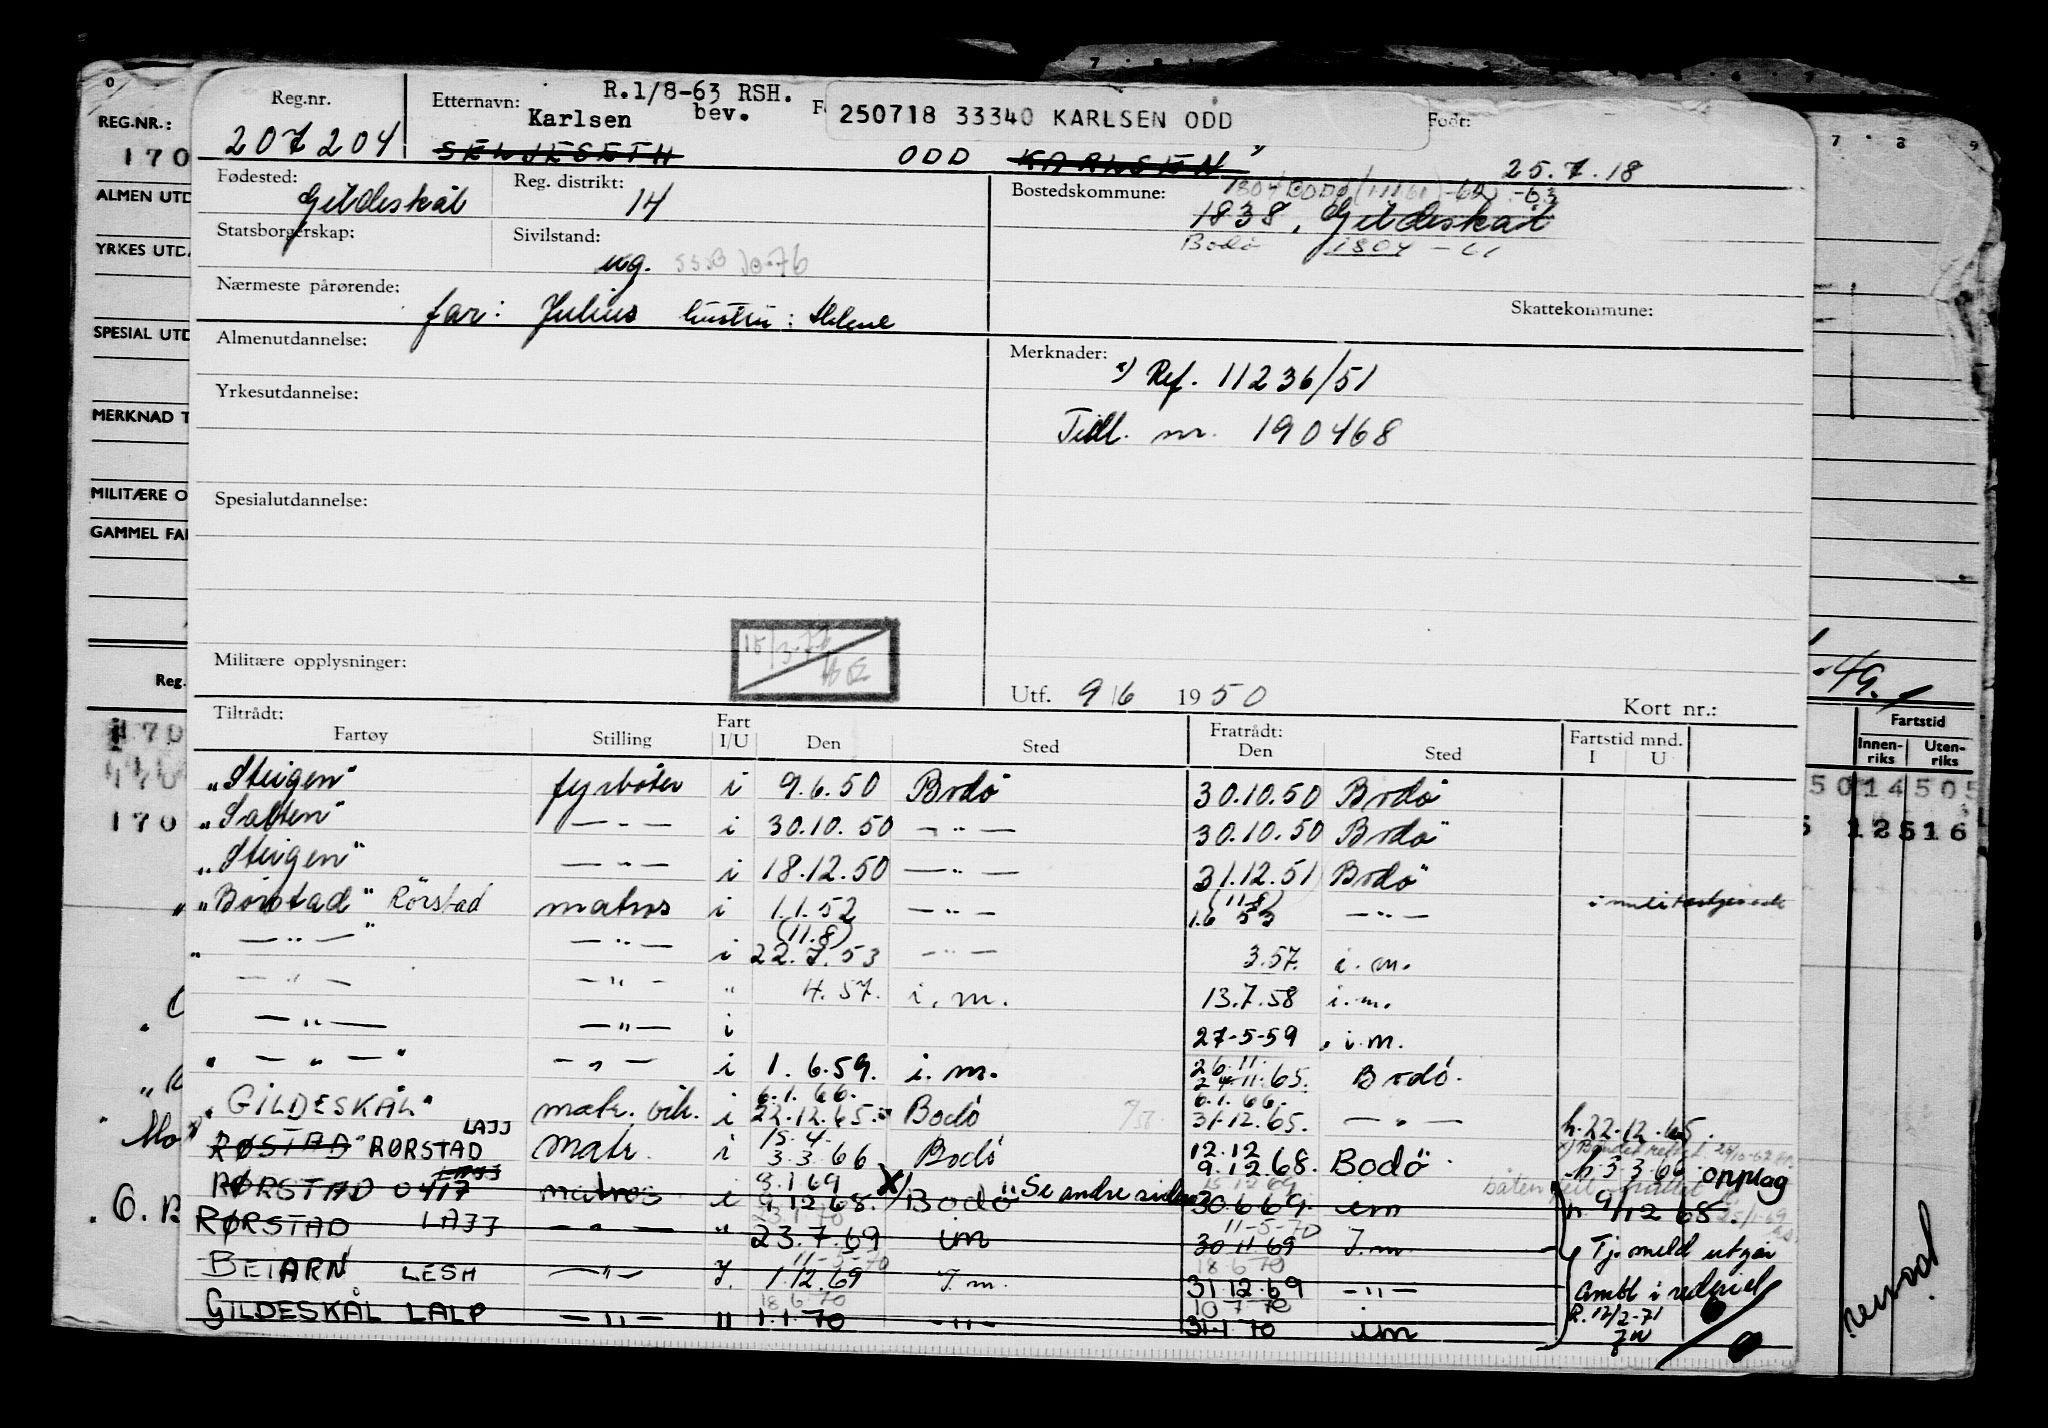 Reg.nr. Etternavn: R.1/8-63 RSH. bev. 250718 33340 KARLSEN ODD Født:
207204 Karlsen SELJESETH ODD KARLSEN 25.7.18
Fødested: Gildeskål Reg. distrikt: 14 Bostedskommune: 1838, Gildeskål
Statsborgerskap: Sivilstand: ug. Bodø 1804
Nærmeste pårørende: far: Julius hustru: Helene Skattekommune:
Almenutdannelse: Merknader: Ref. 11236/51
Yrkesutdannelse: Tidl. nr. 190468
Spesialutdannelse:
Militære opplysninger: Utf. 9/6 1950 Kort nr.:
Tiltrådt: Fratrådt: Fartstid mnd.
Fartøy Stilling Fart I/U Den Sted Den Sted I U
"Steigen" fyrbøter i 9.6.50 Bodø 30.10.50 Bodø
"Salten" — " — i 30.10.50 — " — 30.10.50 Bodø
"Steigen" — " — i 18.12.50 — " — 31.12.51 Bodø
"Börstad" Rørstad matros i 1.1.52 — " — (11.8) 1.6 53 — " —
— " — — " — i (11.8) 22.7.53 — " — 3.57. i.m.
— " — — " — " 4.57. i.m. 13.7.58 i.m.
— " — — " — i 27-5-59 i.m.
" — " — " — " — i 1.6.59. i.m. 26.11. 24.11.65. Bodø.
"GILDESKÅL" matr. vik. i 6.1.66. 22.12.65. Bodø 6.1.66. 31.12.65. — " — h.22.12.65.
RØSTAD RØRSTAD LAJJ Matr. i 15.4. 3.3.66 Bodø 12.12 9.12.68. Bodö h.3.3.66 opplag
RØRSTAD matros i 8.1.69 9.12.68. X) Bodö "Se andre siden 30.6.69. im h. 9/12 68.
RØRSTAD LAJJ — " — " 23.7.69 im 11-5-70 30.11.69 I.m. Tj.meld utgår
BEIARN LESH — " — I. 11-5-70 1.12.69 I.m. 18.6.70 31.12.69 — " — ombl i rederiet
GILDESKÅL LALP — " — " 18.6.70 1.1.70 — " — 10.7.70 31.1.70 im R.12/2-71
REG.NR.:
170
ALMEN UTD
YRKES UTD
SPESIAL UTD
MERKNAD T
MILITÆRE O
GAMMEL FA
Reg.
170
170
Fartstid
Innenriks Utenriks
5014505
12516